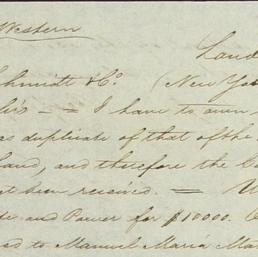 Western
Lond
Schmidt & Co. (New York
Sirs — I have to own,
as duplicate of that of the
hand, and therefore the C
not been received. =
and Power for $10000.
to Manuel Maria Ma